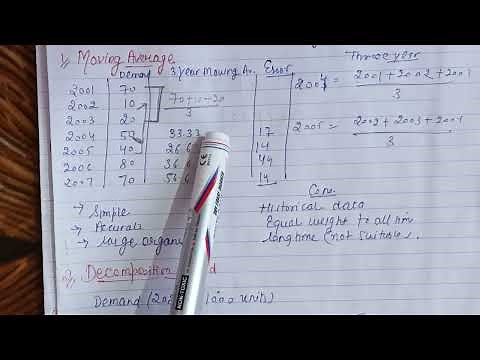 1) Moving Average
Three year
Demand 3 year Moving Av. Error
2001 70
2002 10
2003 20
2004 50 33.33 17
2005 40 26.6 14
2006 80 36.6 44
2007 70 56.6 14
70+10+20
3
2004 = 2001+2002+2003
3
2005 = 2002+2003+2004
3
→ Simple
→ Accurate
→ Large organi
Cons.
Historical data
Equal weight to all
long time (not suitable).
2) Decomposition
Demand (20 1000 units)